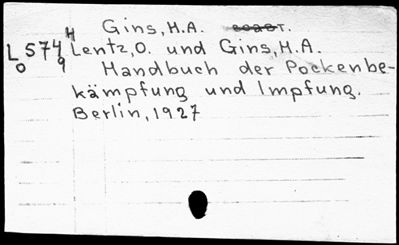 Gins, H.A.
L 574 H Lentz, O. und Gins, H.A.
o 9 Handbuch der Pockenbe-
kämpfung und Impfung.
Berlin, 1927